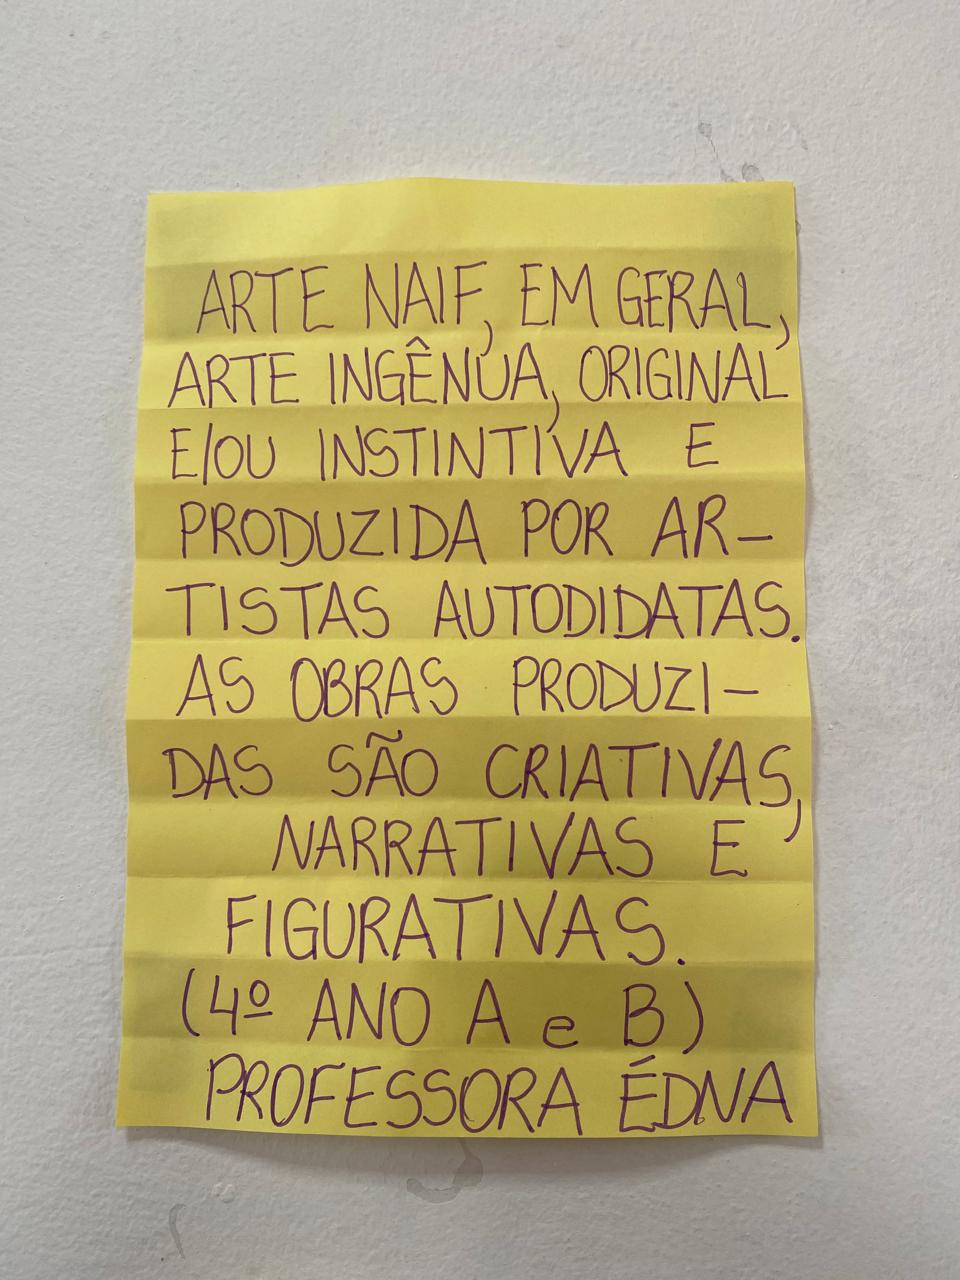 ARTE NAIF, EM GERAL,
ARTE INGÊNUA, ORIGINAL
E/OU INSTINTIVA E
PRODUZIDA POR AR-
TISTAS AUTODIDATAS.
AS OBRAS PRODUZI-
DAS SÃO CRIATIVAS,
NARRATIVAS E
FIGURATIVAS.
(4º ANO A e B)
PROFESSORA ÉDNA